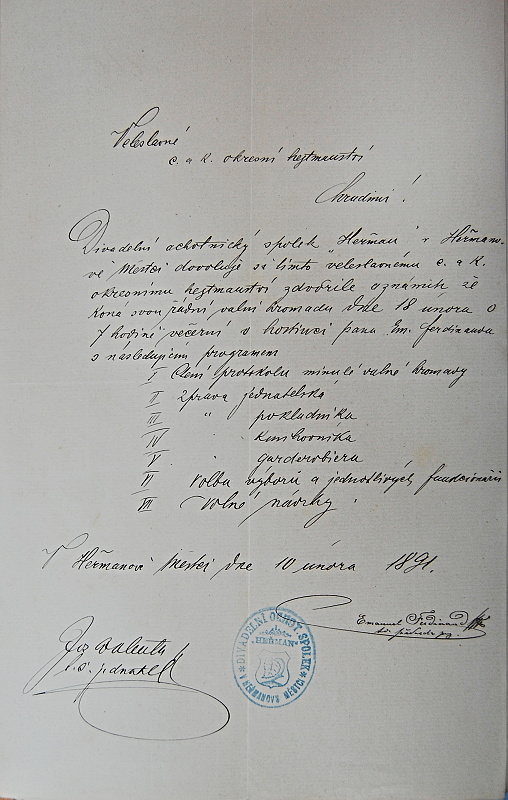 Veleslavné
c. a k. okresní hejtmanství
Chrudimi!
Divadelní ochotnický spolek „Heřman" v Heřmano-
vě Městci dovoluje si tímto veleslavnému c. a k.
okresnímu hejtmanství zdvořile oznámiti že
koná svou řádní valní hromadu dne 18 února o
7 hodině večerní v hostinci pana Em. Ferdinanda
s následujícím programem
I Čtení protokolu minulé valné hromady
II Zpráva jednatelská
III " pokladníka
IV " knihovníka
V " garderobiera
VI Volba výboru a jednotlivých funkcionářů
VII Volné návrhy.
V Heřmanově Městci dne 10 února 1891.
Emanuel Ferdinand
t. č. jednatel
DIVADELNÍ OCHOT. SPOLEK
„HEŘMAN"
V HEŘMANOVĚ MĚSTCI